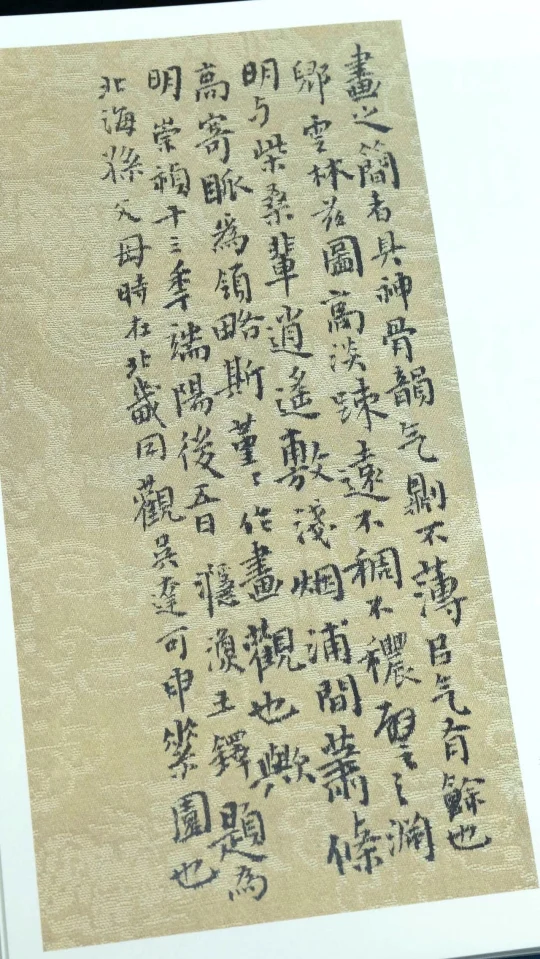 畫之簡者具神骨韻气劚不薄㠯气有餘也
鄒雲林茲圖高淡踈遠不稠不穠譬之淵
明与柴桑輩逍遙敷淺烟浦間蕭條
高寄眽爲領略斯菫〻作畫觀也歟
明崇禎十三季端陽後五日癡渙王鐸題為
北海孫父母時在北畿同觀吳達可申紫園也